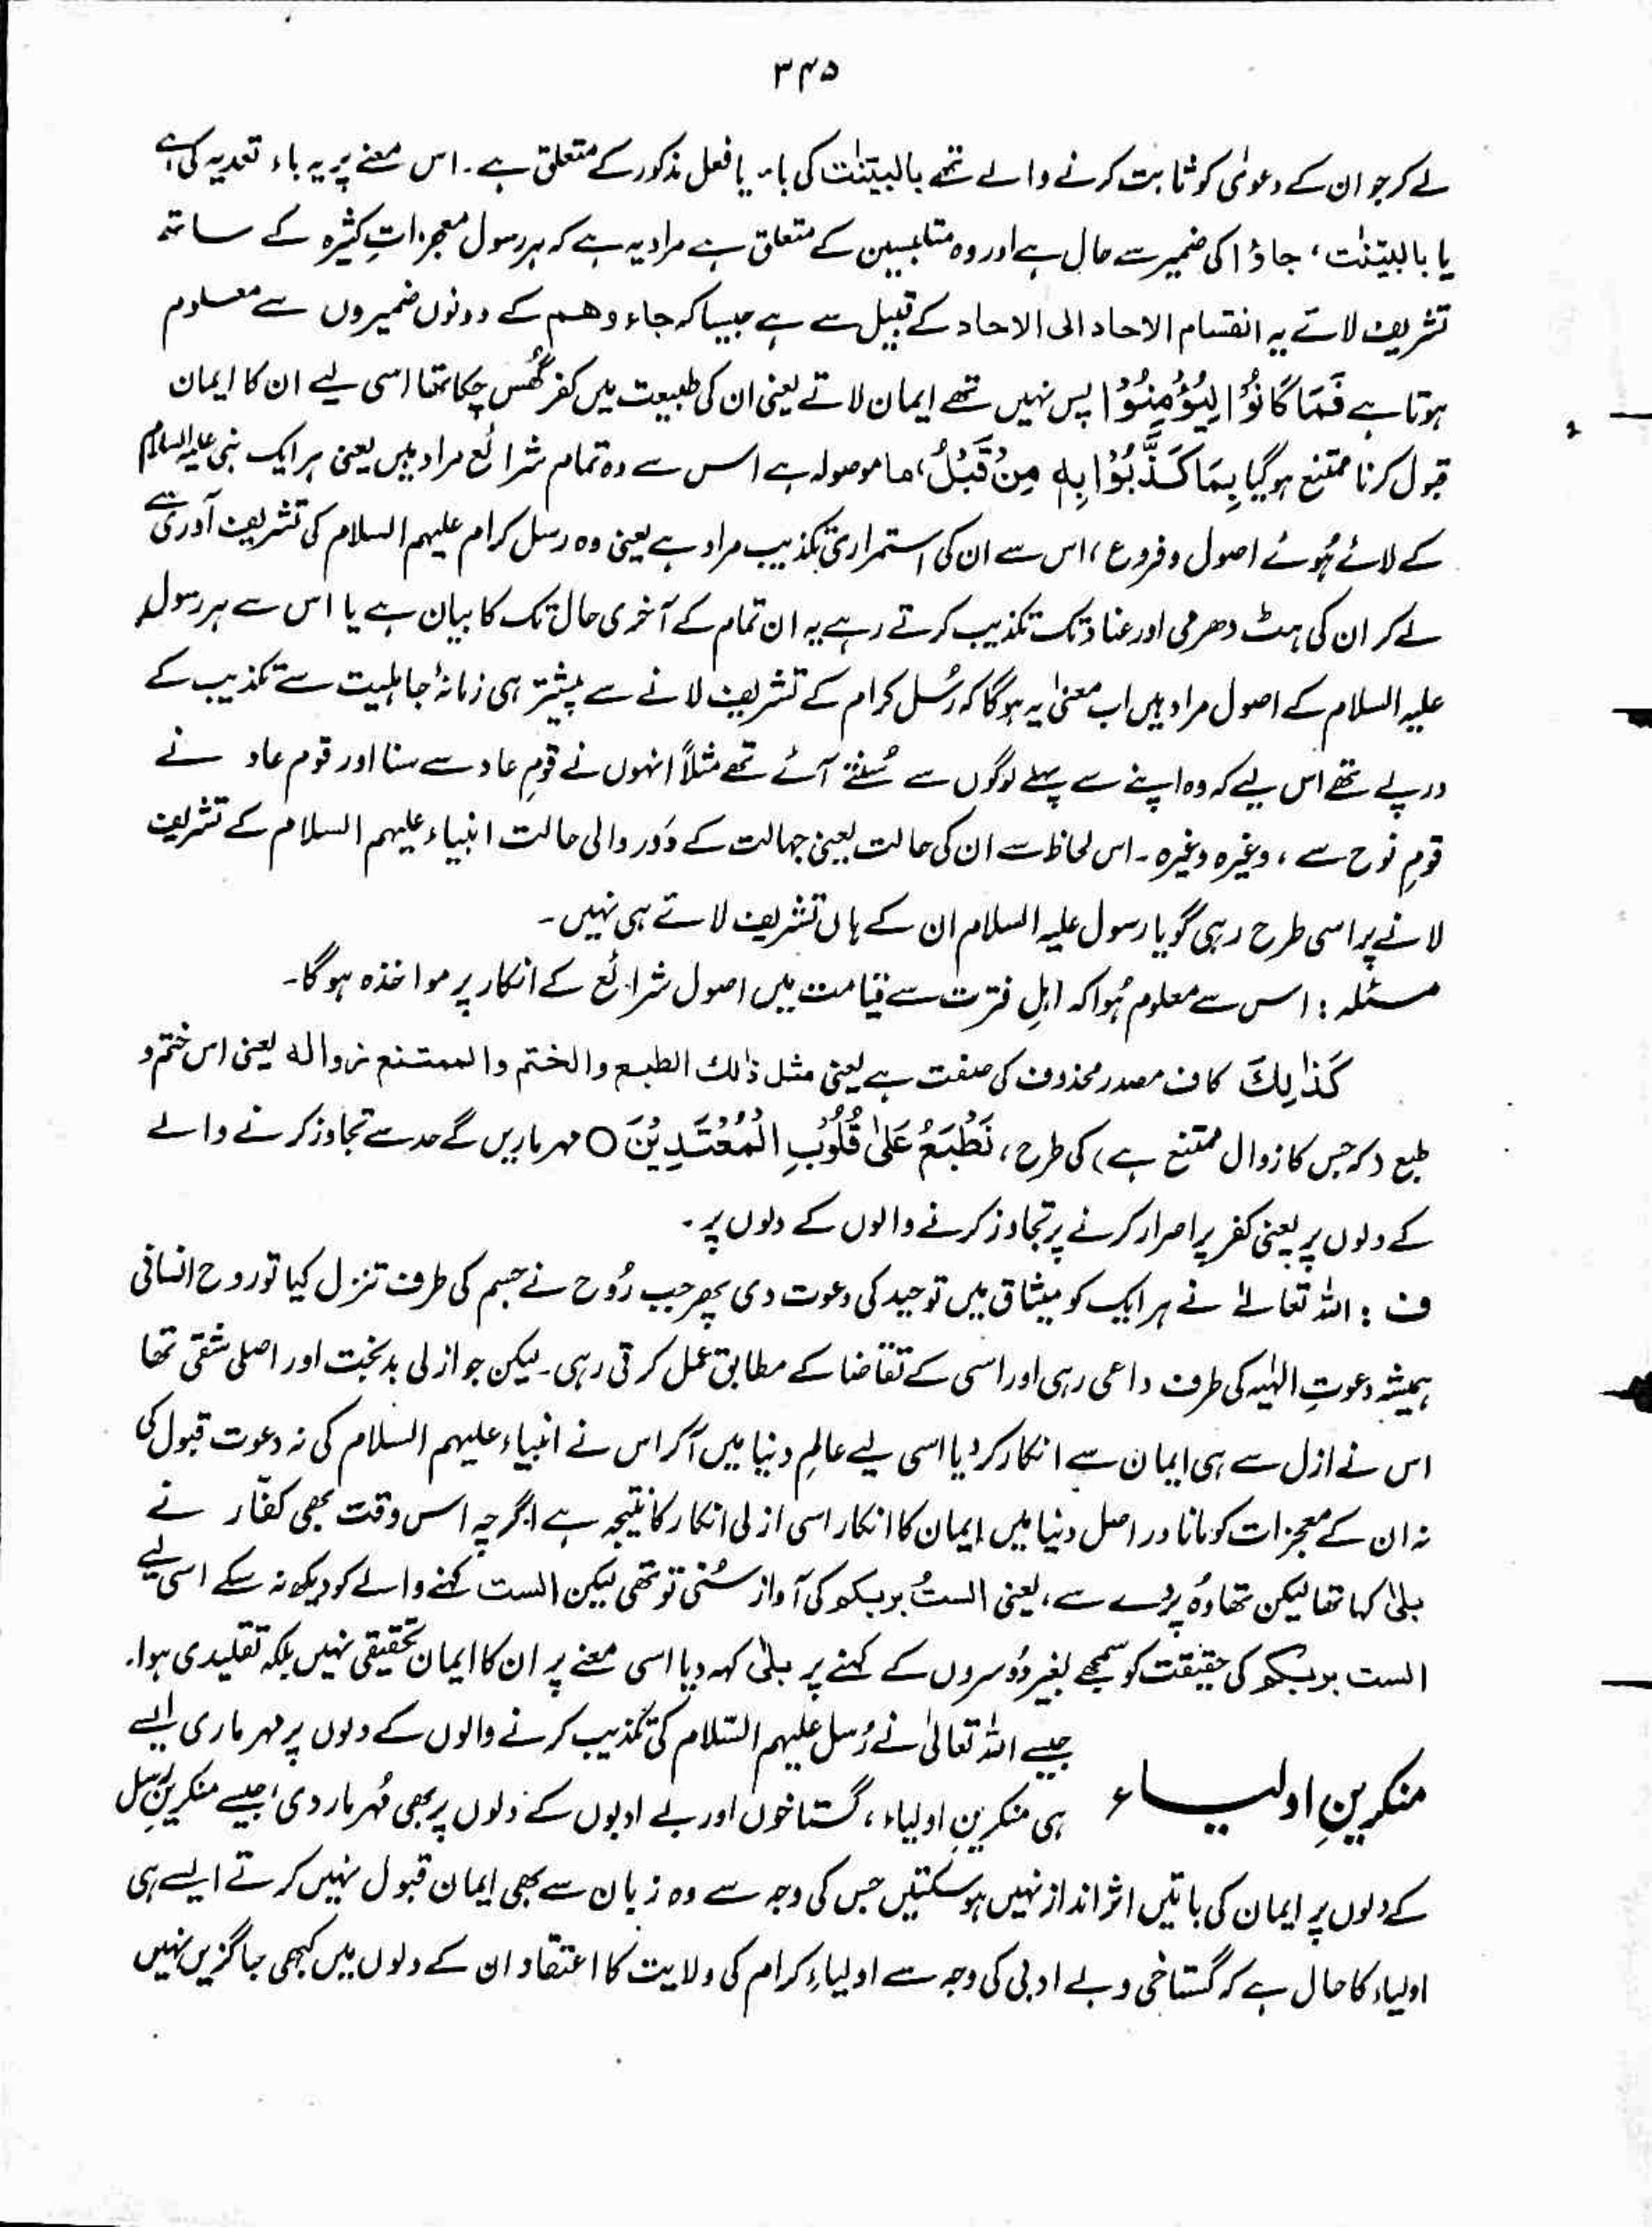 ۳۴۵
لے کر جو ان کے دعویٰ کو ثابت کرنے والے تھے بالبیّنٰت کی باء یا فعل مذکور کے متعلق ہے ۔ اس معنے پر یہ باء تعدیہ کی ہے
یا بالبیّنٰت ، جاؤا کی ضمیر سے حال ہے اور وہ متلبسین کے متعلق ہے مراد یہ ہے کہ ہر رسول معجزاتِ کثیرہ کے ساتھ
تشریف لائے یہ انقسام الاحاد الی الاحاد کے قبیل سے ہے جیسا کہ جاء وھم کے دونوں ضمیروں سے معلوم
ہوتا ہے فَمَا كَانُوْا لِيُؤْمِنُوْا پس نہیں تھے ایمان لاتے یعنی ان کی طبیعت میں کفر گھُس چکا تھا اسی لیے ان کا ایمان
قبول کرنا ممتنع ہو گیا بِمَا كَذَّبُوْا بِهٖ مِنْ قَبْلُ ، ما موصولہ ہے اس سے وہ تمام شرائع مراد ہیں یعنی ہر ایک نبی علیہ السلام
کے لائے ہُوئے اصول و فروع ، اس سے ان کی استمراری تکذیب مراد ہے یعنی وہ رسل کرام علیہم السلام کی تشریف آوری سے
لے کر ان کی ہٹ دھرمی اور عناد تک تکذیب کرتے رہے یہ ان تمام کے آخری حال تک کا بیان ہے یا اس سے ہر رسول
علیہ السلام کے اصول مراد ہیں اب معنیٰ یہ ہوگا کہ رُسل کرام کے تشریف لانے سے پیشتر ہی زمانۂ جاہلیت سے تکذیب کے
درپے تھے اس لیے کہ وہ اپنے سے پہلے لوگوں سے سُنتے آئے تھے مثلاً انہوں نے قومِ عاد سے سنا اور قوم عاد نے
قومِ نوح سے ، وغیرہ وغیرہ ۔ اس لحاظ سے ان کی حالت یعنی جہالت کے دَور والی حالت انبیاء علیہم السلام کے تشریف
لانے پر اسی طرح رہی گویا رسول علیہ السلام ان کے ہاں تشریف لائے ہی نہیں ۔
مسئلہ : اس سے معلوم ہُوا کہ اہلِ فترت سے قیامت میں اصول شرائع کے انکار پر مواخذہ ہوگا ۔
كَذٰلِكَ کاف مصدر محذوف کی صفت ہے یعنی مثل ذٰلك الطبع والختم والممتنع زواله یعنی اس ختم و
طبع (کہ جس کا زوال ممتنع ہے) کی طرح ، نَطْبَعُ عَلٰى قُلُوْبِ الْمُعْتَدِيْنَ ○ مہر ماریں گے حد سے تجاوز کرنے والے
کے دلوں پر یعنی کفر پر اصرار کرنے پر تجاوز کرنے والوں کے دلوں پر ۔
ف : اللہ تعالےٰ نے ہر ایک کو میثاق میں توحید کی دعوت دی پھر جب رُوح نے جسم کی طرف تنزل کیا تو روح انسانی
ہمیشہ دعوتِ الٰہیہ کی طرف داعی رہی اور اسی کے تقاضا کے مطابق عمل کرتی رہی ۔ لیکن جو ازلی بدبخت اور اصلی شقی تھا
اس نے ازل سے ہی ایمان سے انکار کر دیا اسی لیے عالمِ دنیا میں آ کر اس نے انبیاء علیہم السلام کی نہ دعوت قبول کی
نہ ان کے معجزات کو مانا دراصل دنیا میں ایمان کا انکار اسی ازلی انکار کا نتیجہ ہے اگرچہ اس وقت بھی کفّار نے
بلیٰ کہا تھا لیکن تھا وُہ پردے سے ، یعنی الستُ بربکم کی آواز سُنی تو تھی لیکن الست کہنے والے کو دیکھ نہ سکے اسی لیے
الست بربکم کی حقیقت کو سمجھے بغیر دُوسروں کے کہنے پر بلیٰ کہہ دیا اسی معنے پر ان کا ایمان تحقیقی نہیں بلکہ تقلیدی ہوا ۔
جیسے اللہ تعالیٰ نے رُسل علیہم السّلام کی تکذیب کرنے والوں کے دلوں پر مہر ماری ایسے
منکرینِ اولیاء
ہی منکرینِ اولیاء ، گستاخوں اور بے ادبوں کے دلوں پر بھی مُہر مار دی ، جیسے منکرینِ رُسل
کے دلوں پر ایمان کی باتیں اثر انداز نہیں ہو سکتیں جس کی وجہ سے وہ زبان سے بھی ایمان قبول نہیں کرتے ایسے ہی
اولیاء کا حال ہے کہ گستاخی و بے ادبی کی وجہ سے اولیاءِ کرام کی ولایت کا اعتقاد ان کے دلوں میں کبھی جاگزیں نہیں